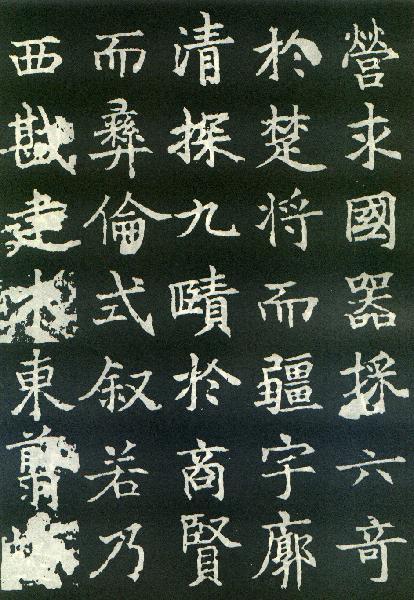 營求國器採六奇
於楚将而疆宇廓
清探九賾於商賢
而彝倫式叙若乃
西戡建木東翦